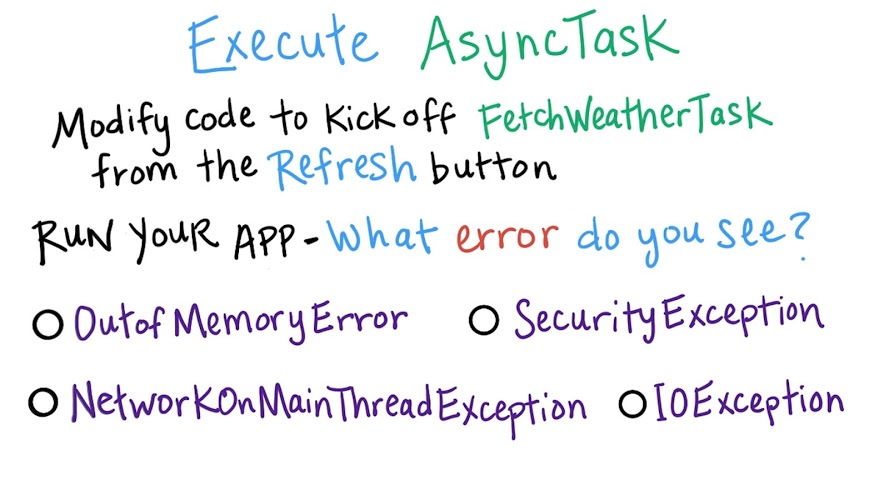 Execute AsyncTask
Modify code to Kick off FetchWeatherTask
from the Refresh button
RUN YOUR APP - What error do you see?
OutofMemoryError
SecurityException
NetworkOnMainThreadException
IOException